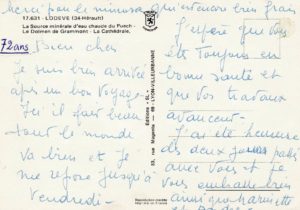 merci pour le mimosa qui est encore bien frais
17.631 - LODEVE (34-Hérault)
La Source minérale d'eau chaude du Puech -
Le Dolmen de Grammont - La Cathédrale.
72 ans
Bien cher
je suis bien arrivée
après un bon voyage
Ici il fait beau
tout le monde
va bien et je
me repose jusqu'à
vendredi -
J'espère que vous
êtes toujours en
bonne santé et
que vos travaux
avancent -
J'ai été heureuse
des deux jours passés
avec vous et je
vous embrasse bien
ainsi que
Editions
69 - LYON-VILLEURBANNE
Reproduction interdite